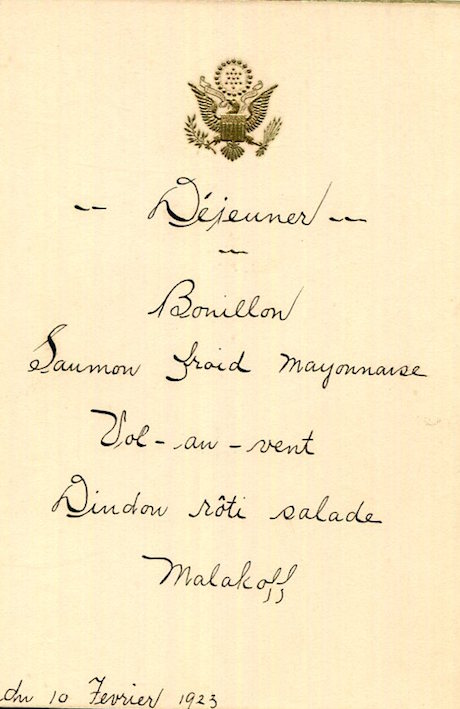 -- Déjeuner --
Bouillon
Saumon froid Mayonnaise
Vol-au-vent
Dindon rôti salade
Malakoff
du 10 Fevrier 1923